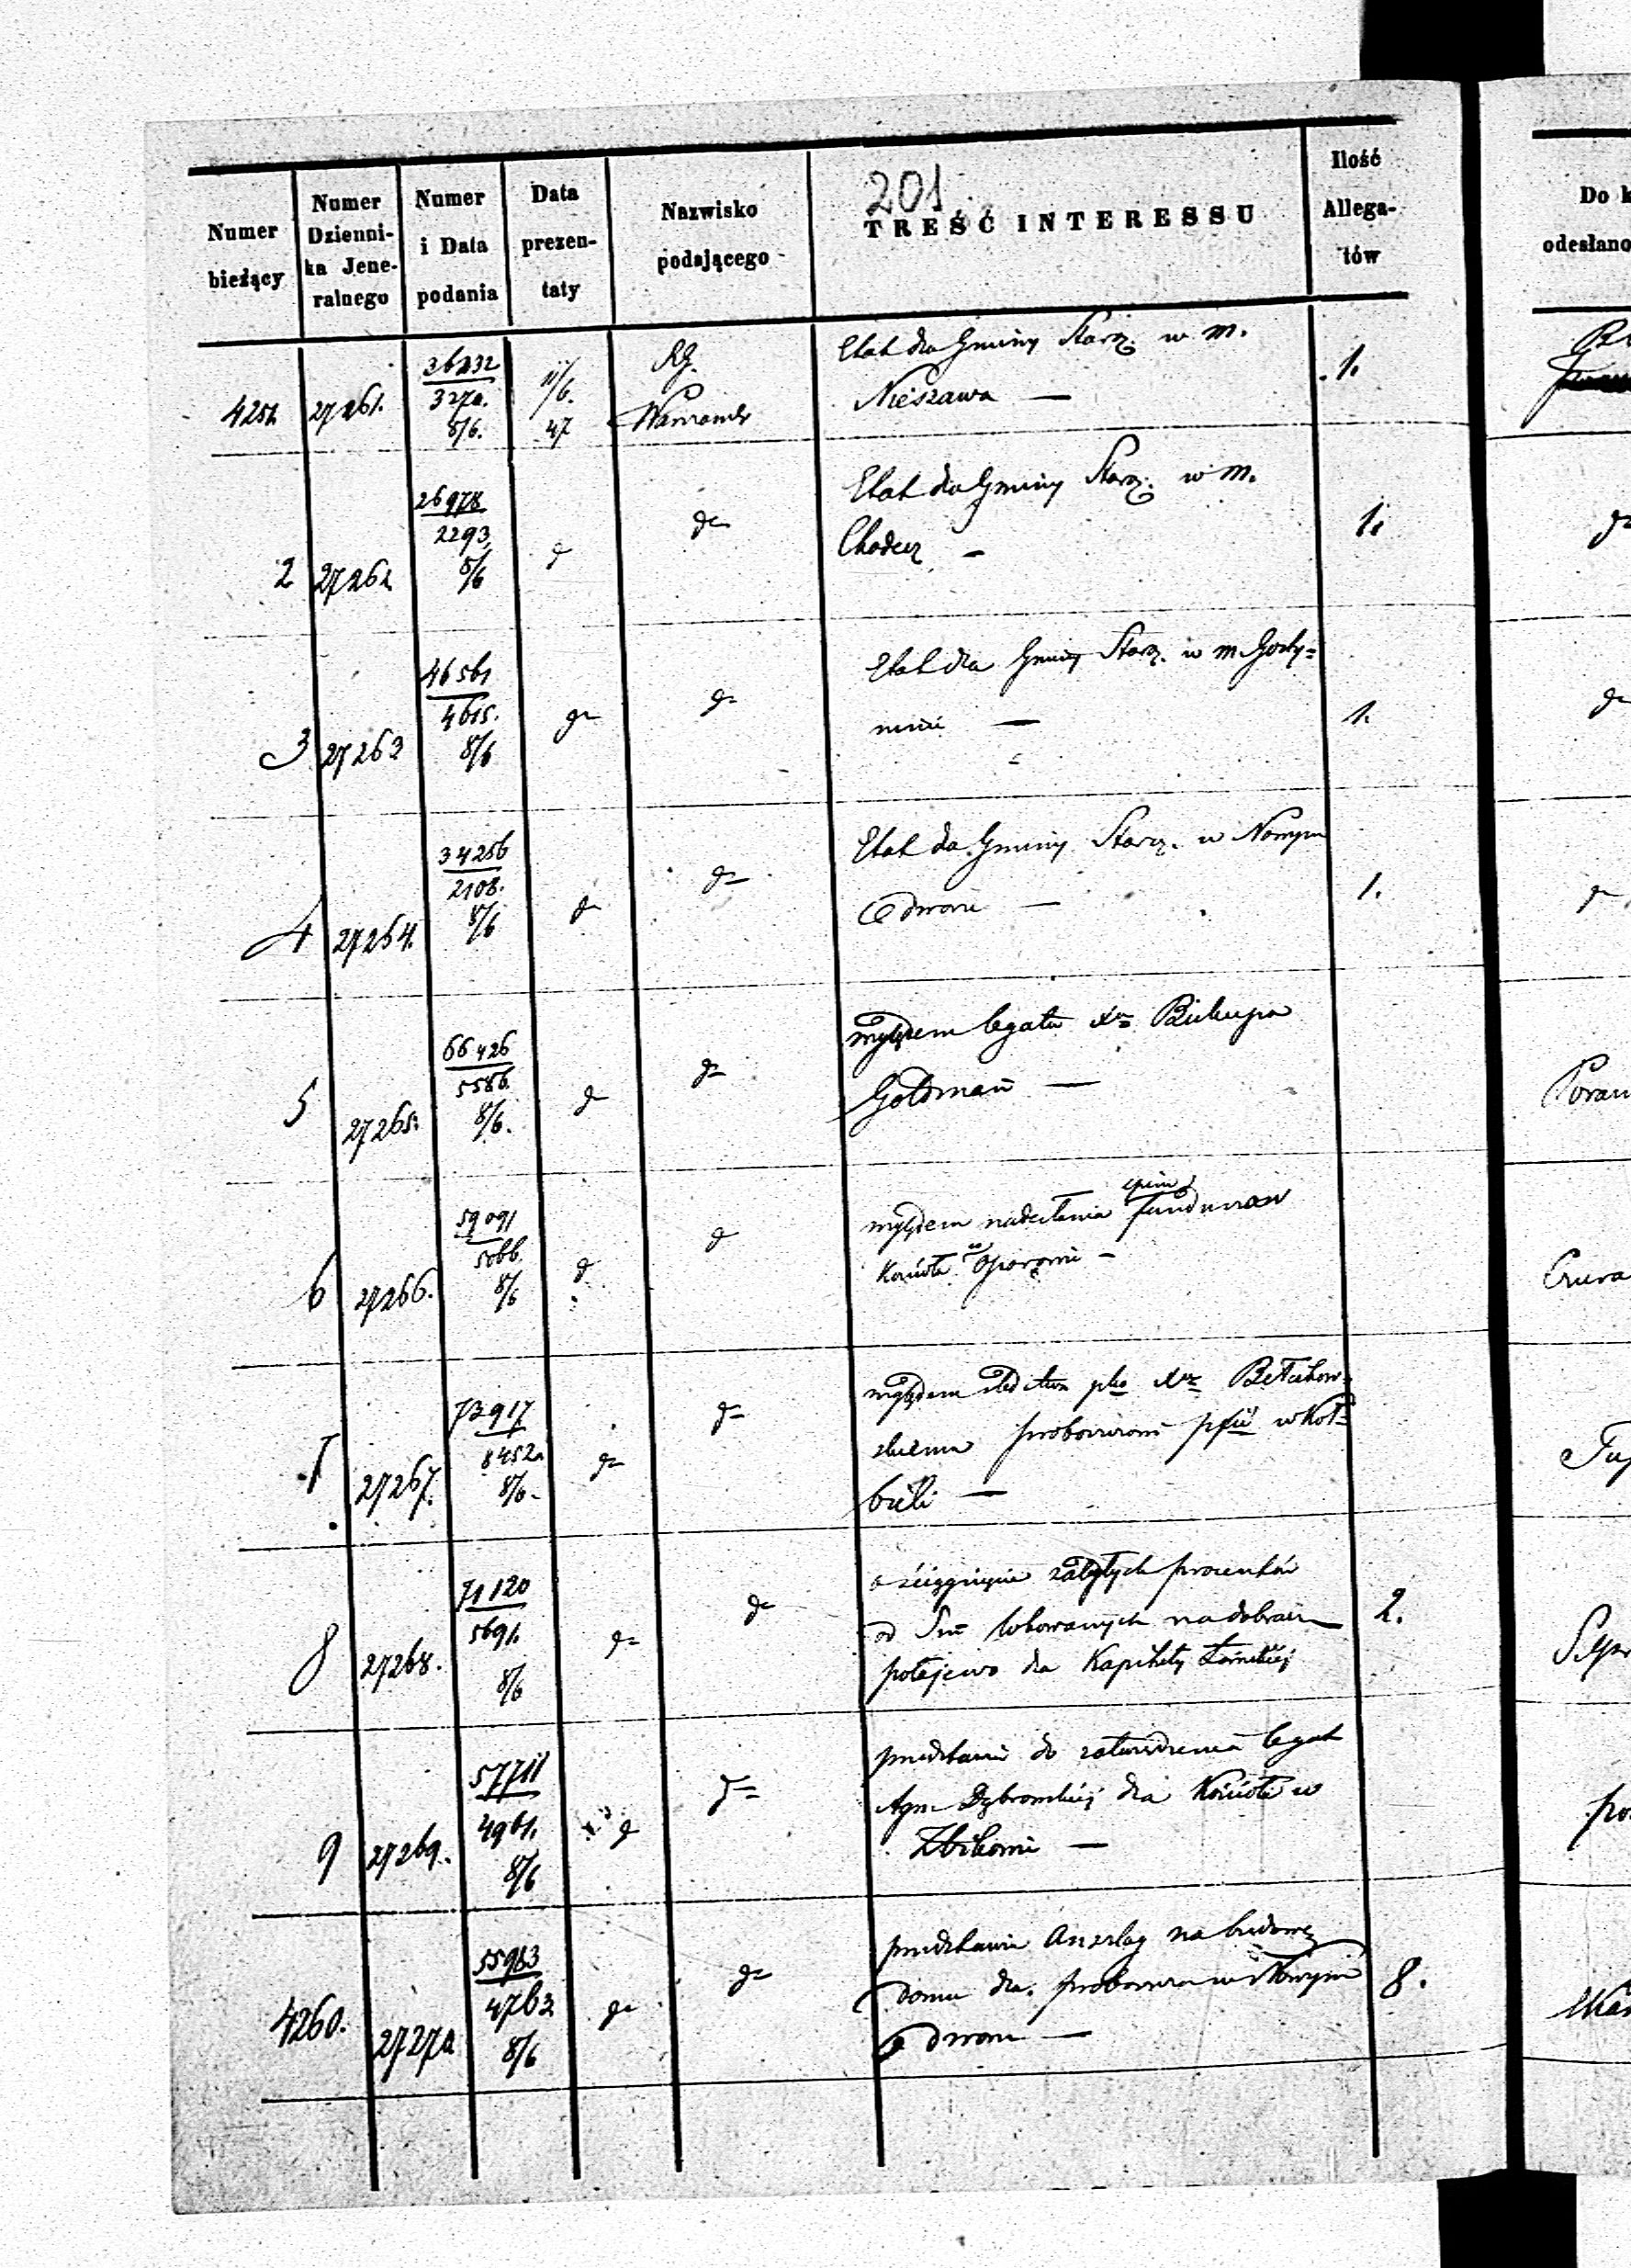 201
Numer bieżący
Numer Dzienni-
ka Jene-
ralnego
Numer i Data podania
Data prezen-
taty
Nazwisko podającego
TREŚĆ INTERESSU
Ilość Allega-
tów
Do k
odesłano
4251. 27261. 36232 3270. 8/6. 11/6. 47 RG. Warszawsk Etat dla Gminy Starz. w m. 1.
Nieszawa —
2 27262 26978 2293. 8/6 d° d° Etat dla Gminy Starz. w m. 1. d°
Chodecz —
3 27263 46561 4615. 8/6 d° d° Etat dla Gminy Starz. w m. Gosty= 1. d°
ninie —
4 27264. 34256 2108. 8/6 d° d° Etat dla Gminy Starz. w Nowym 1. d°
Dworze —
5 27265. 66426 5586. 8/6. d° d° względem legatu Xa Biskupa
Goldman —
6 27266. 59091 5066. 8/6 d° d° względem nadesłania funduszów
Kościoła w Oporowie —
7 27267. 73917 8452. 8/6. d° d° względem śledztwa pko Xa
proboszczowi w Koł=
bieli —
8 27268. 71120 5691. 8/6 d° d° o ściągnięcie zaległych procentów 2.
od Sum lokowanych na dobrach
potajewo dla Kapituły
9 27269. 57711 4961. 8/6 d° d° przedstawia do zatwierdzenia legat
Agn. Dąbrowskiej dla Kościoła w
Zbikowie —
4260. 27270 55983 4763 8/6 d° d° przedstawia Anszlag na budowę 8.
domu dla proboszcza w Nowym
Dworze —